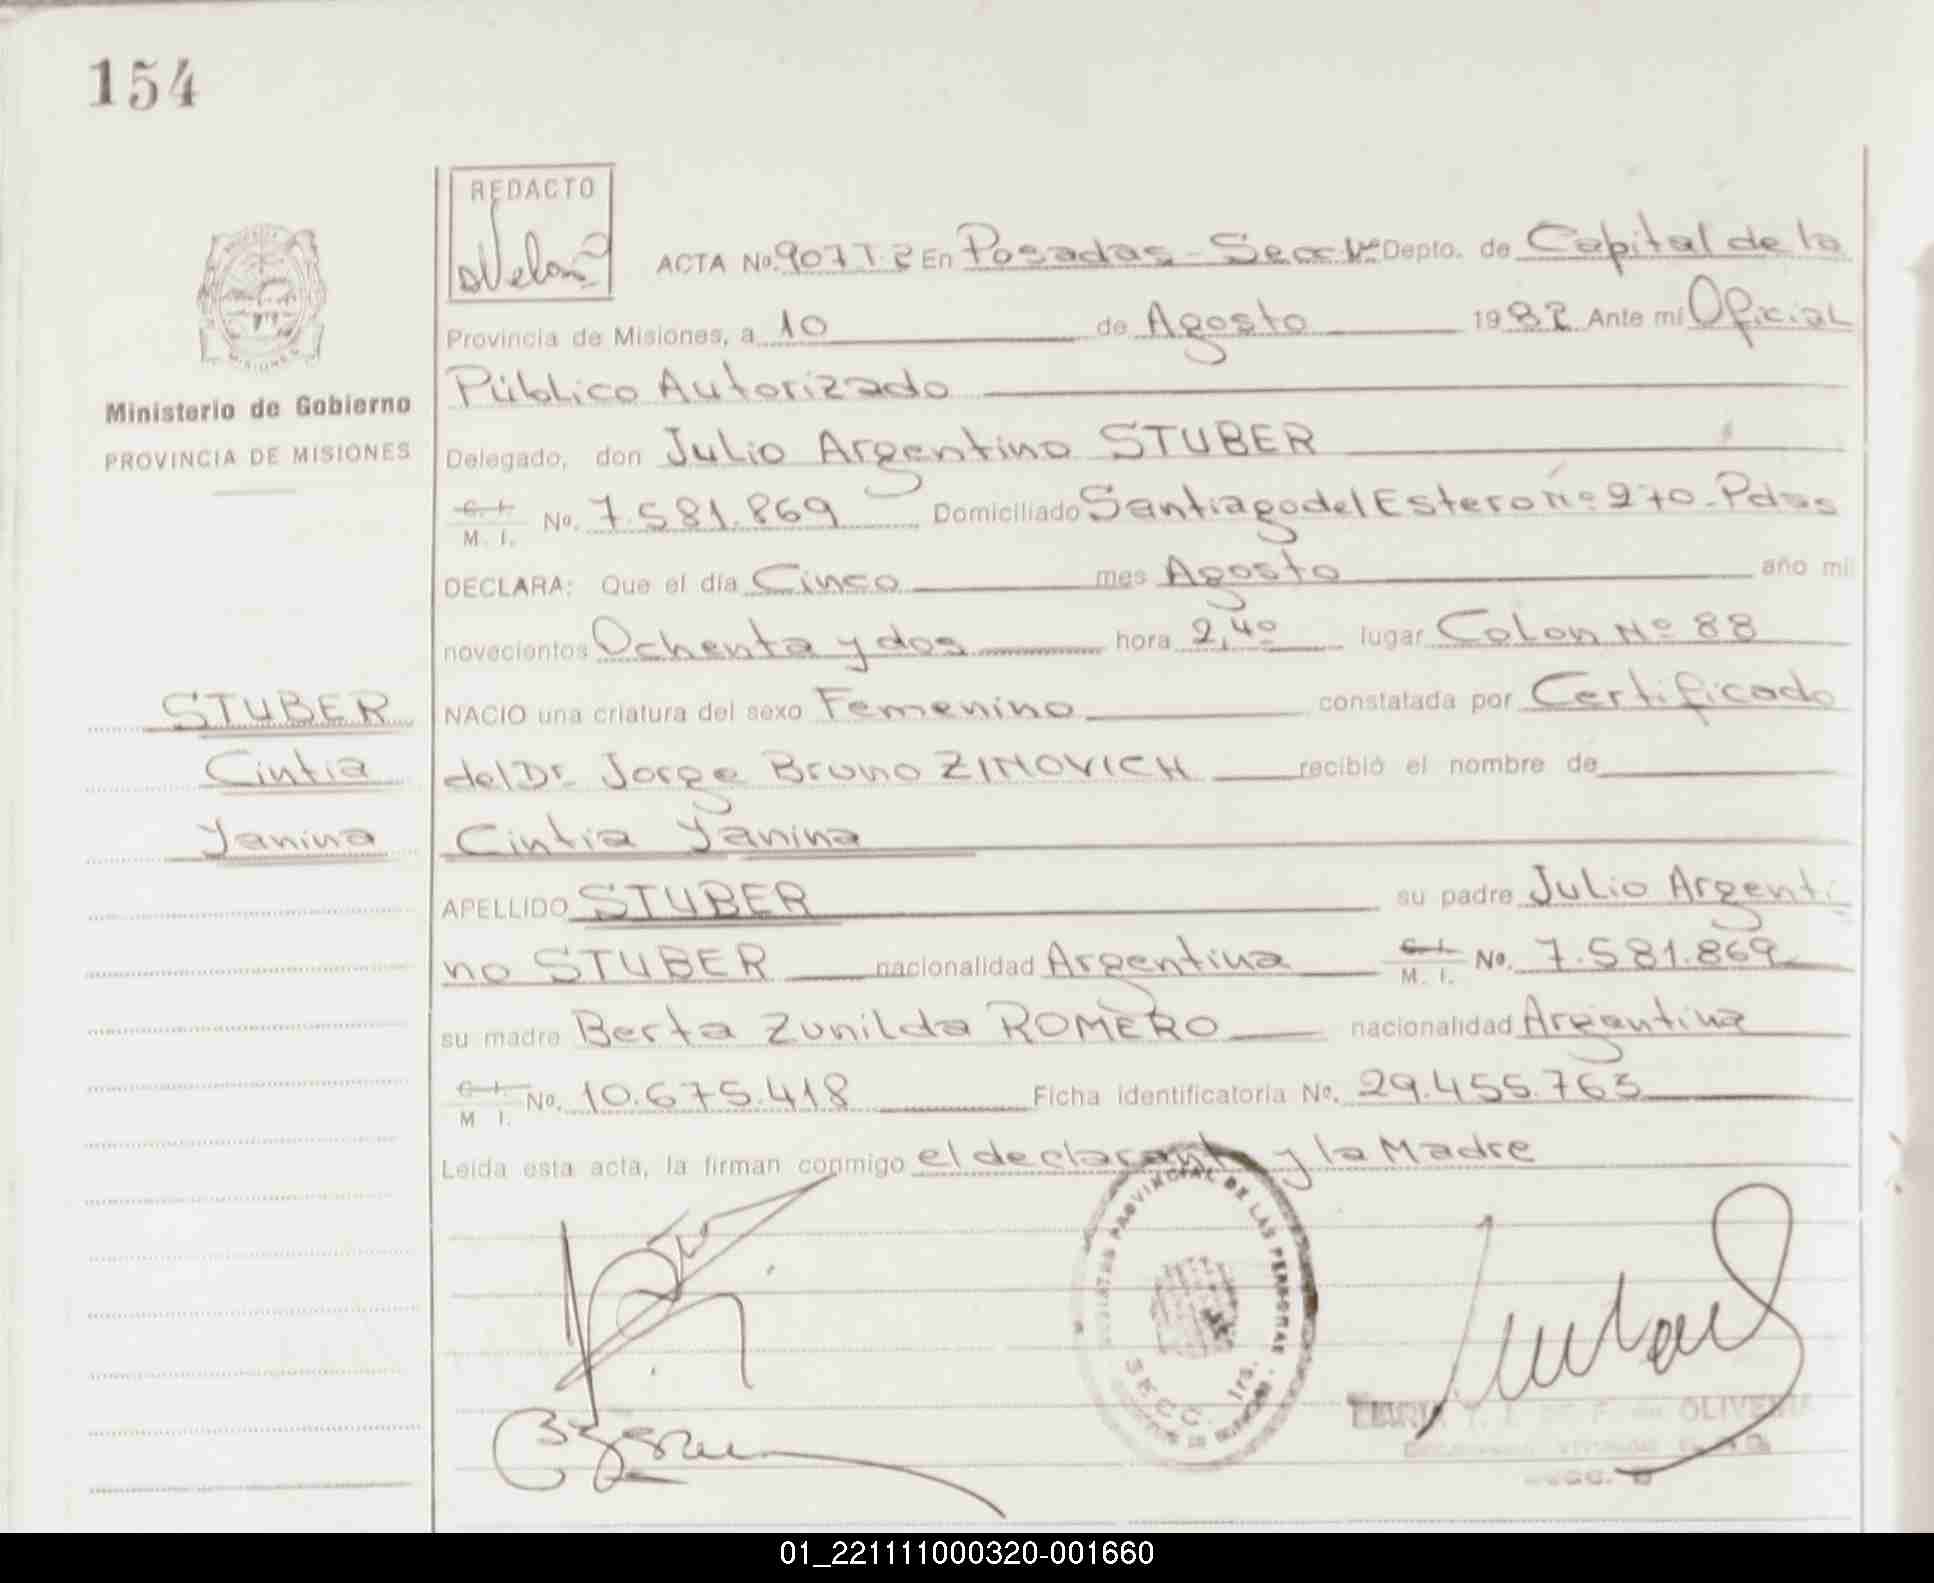 154
REDACTO
ACTA No. 907 T 2 En Posadas - Secc 1ra Depto. de Capital de la
Provincia de Misiones, a 10 de Agosto 1982 Ante mi Oficial
Público Autorizado
Ministerio de Gobierno
PROVINCIA DE MISIONES
Delegado, don Julio Argentino STUBER
C. I. M. I. No. 7.581.869 Domiciliado Santiago del Estero Nº 270 - Pdas
DECLARA: Que el día Cinco mes Agosto año mil
novecientos Ochenta y dos hora 2,40 lugar Colon Nº 88
STUBER
NACIO una criatura del sexo Femenino constatada por Certificado
Cintia
del Dr. Jorge Bruno ZINOVICH recibió el nombre de
Yanina
Cintia Yanina
APELLIDO STUBER su padre Julio Argenti
no STUBER nacionalidad Argentina C. I. M. I. No. 7.581.869
su madre Berta Zunilda ROMERO nacionalidad Argentina
C. I. M I. No. 10.675.418 Ficha identificatoria No. 29.455.763
Leída esta acta, la firman conmigo el declarante y la Madre
PROVINCIAL DE LAS PERSONAS
SECC. 1ra.
OLIVEIRA
01_221111000320-001660